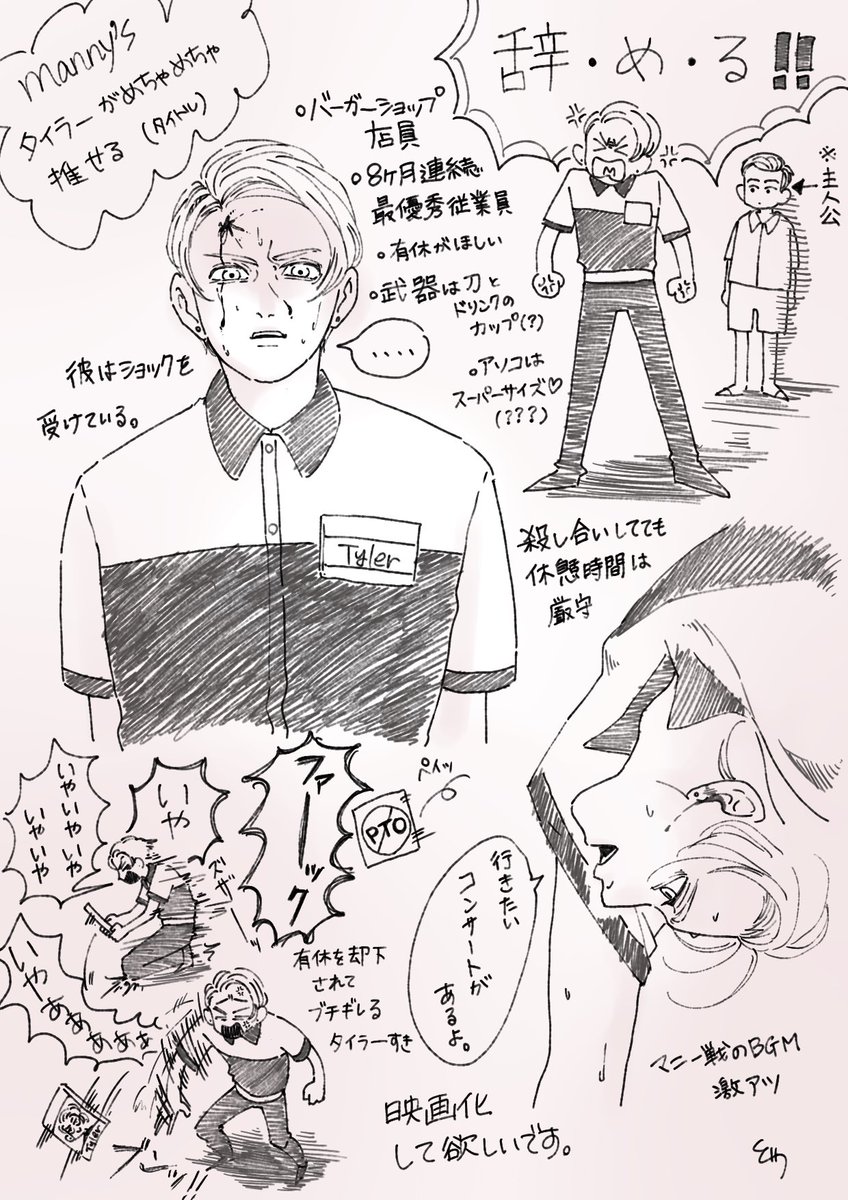 manny's
タイラーがめちゃめちゃ
推せる (タイトル)
辞・め・る!!
バーガーショップ
店員
8ヶ月連続
最優秀従業員
有休がほしい
武器は刀と
ドリンクの
カップ(?)
アソコは
スーパーサイズ♡
(???)
※主人公
彼はショックを
受けている。
‥‥
Tyler
殺し合いしてても
休憩時間は
厳守
いやいやいや
いやいや
いや
ズザー
ファーック
PTO
ペイッ
いやーあああああ
有休を却下
されて
ブチギレる
タイラーすき
Tyler
行きたい
コンサートが
あるよ。
マニー戦のBGM
激アツ
映画化
して欲しいです。